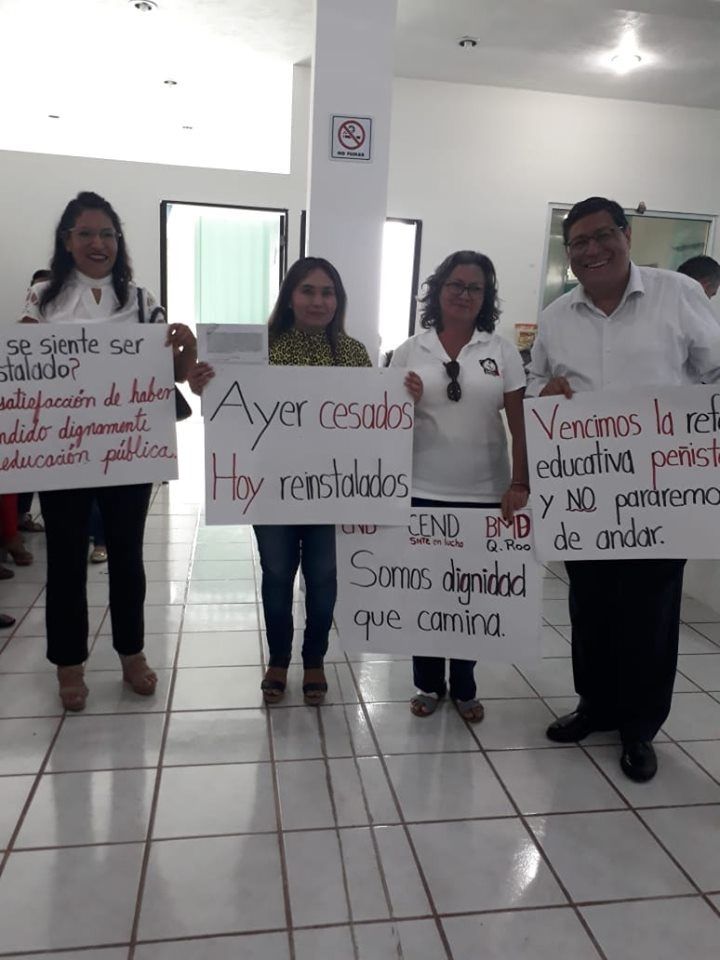 NO FUMAR
se siente ser
stalado?
satisfacción de haber
ndido dignamente
educación pública.
Ayer cesados
Hoy reinstalados
CEND BMD
SNTE en lucha Q. Roo
Somos dignidad
que camina.
Vencimos la refo
educativa peñist
y NO pararemo
de andar.